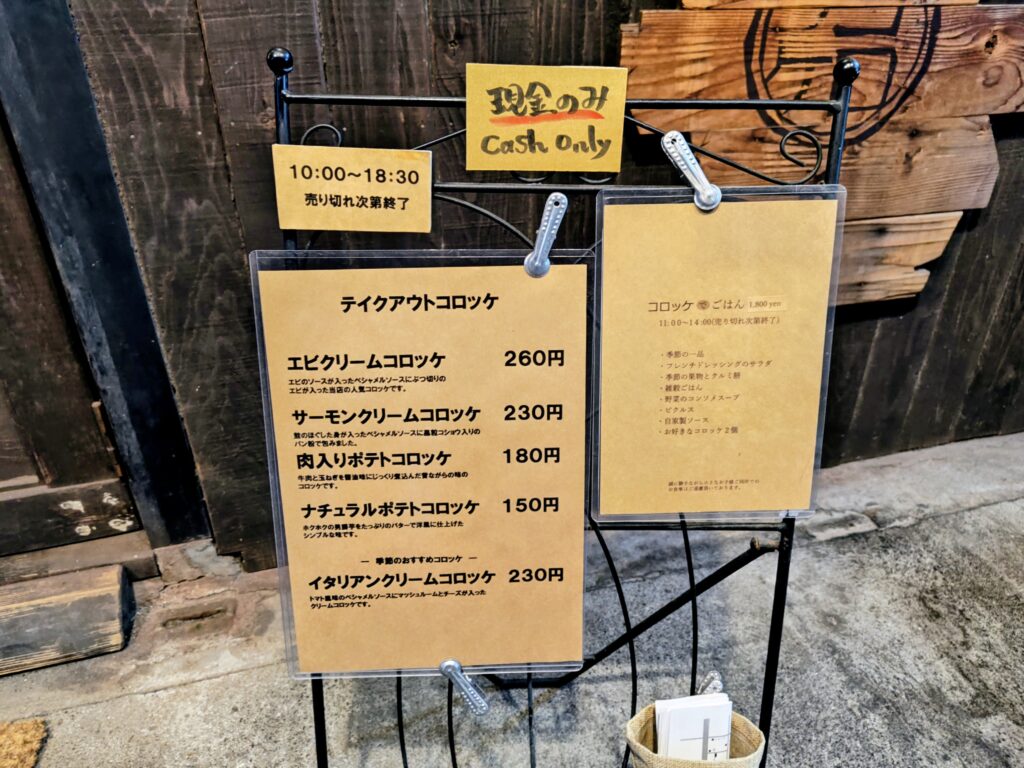 現金のみ
Cash Only
10:00〜18:30
売り切れ次第終了
テイクアウトコロッケ
エビクリームコロッケ 260円
エビのソースが入ったベシャメルソースにぶつ切りの
エビが入った当店の人気コロッケです。
サーモンクリームコロッケ 230円
鮭のほぐした身が入ったベシャメルソースに黒粒コショウ入りの
パン粉で包みました。
肉入りポテトコロッケ 180円
牛肉と玉ねぎを醤油味にじっくり煮込んだ昔ながらの味の
コロッケです。
ナチュラルポテトコロッケ 150円
ホクホクの男爵芋をたっぷりのバターで洋風に仕上げた
シンプルな味です。
― 季節のおすすめコロッケ ―
イタリアンクリームコロッケ 230円
トマト風味のベシャメルソースにマッシュルームとチーズが入った
クリームコロッケです。
コロッケ で ごはん 1,800 yen
11:00〜14:00(売り切れ次第終了)
・季節の一品
・フレンチドレッシングのサラダ
・季節の果物とクルミ餅
・雑穀ごはん
・野菜のコンソメスープ
・ピクルス
・自家製ソース
・お好きなコロッケ2個